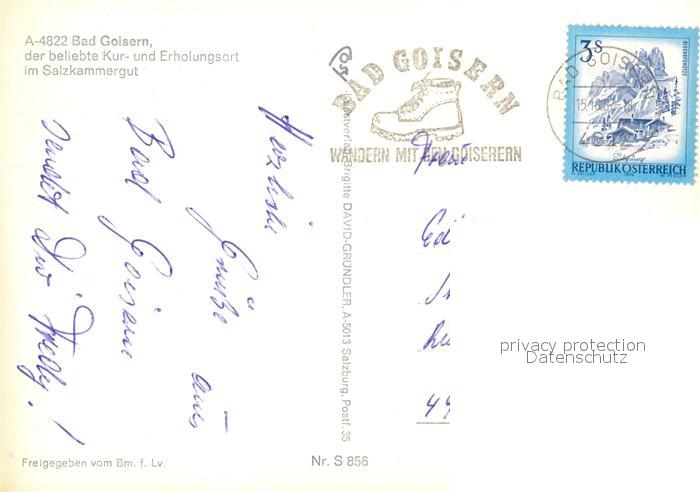 A-4822 Bad Goisern,
der beliebte Kur- und Erholungsort
im Salzkammergut
BAD GOISERN
WANDERN MIT DEN GOISERERN
BAD GOISERN
3S
REPUBLIK ÖSTERREICH
Herzliche
Grüße aus
Bad Goisern
sendet Dir Fredy!
Kunstverlag Brigitte DAVID-GRÜNDLER, A-5013 Salzburg, Postf. 35
Frau
privacy protection
Datenschutz
Freigegeben vom Bm. f. Lv.
Nr. S 856